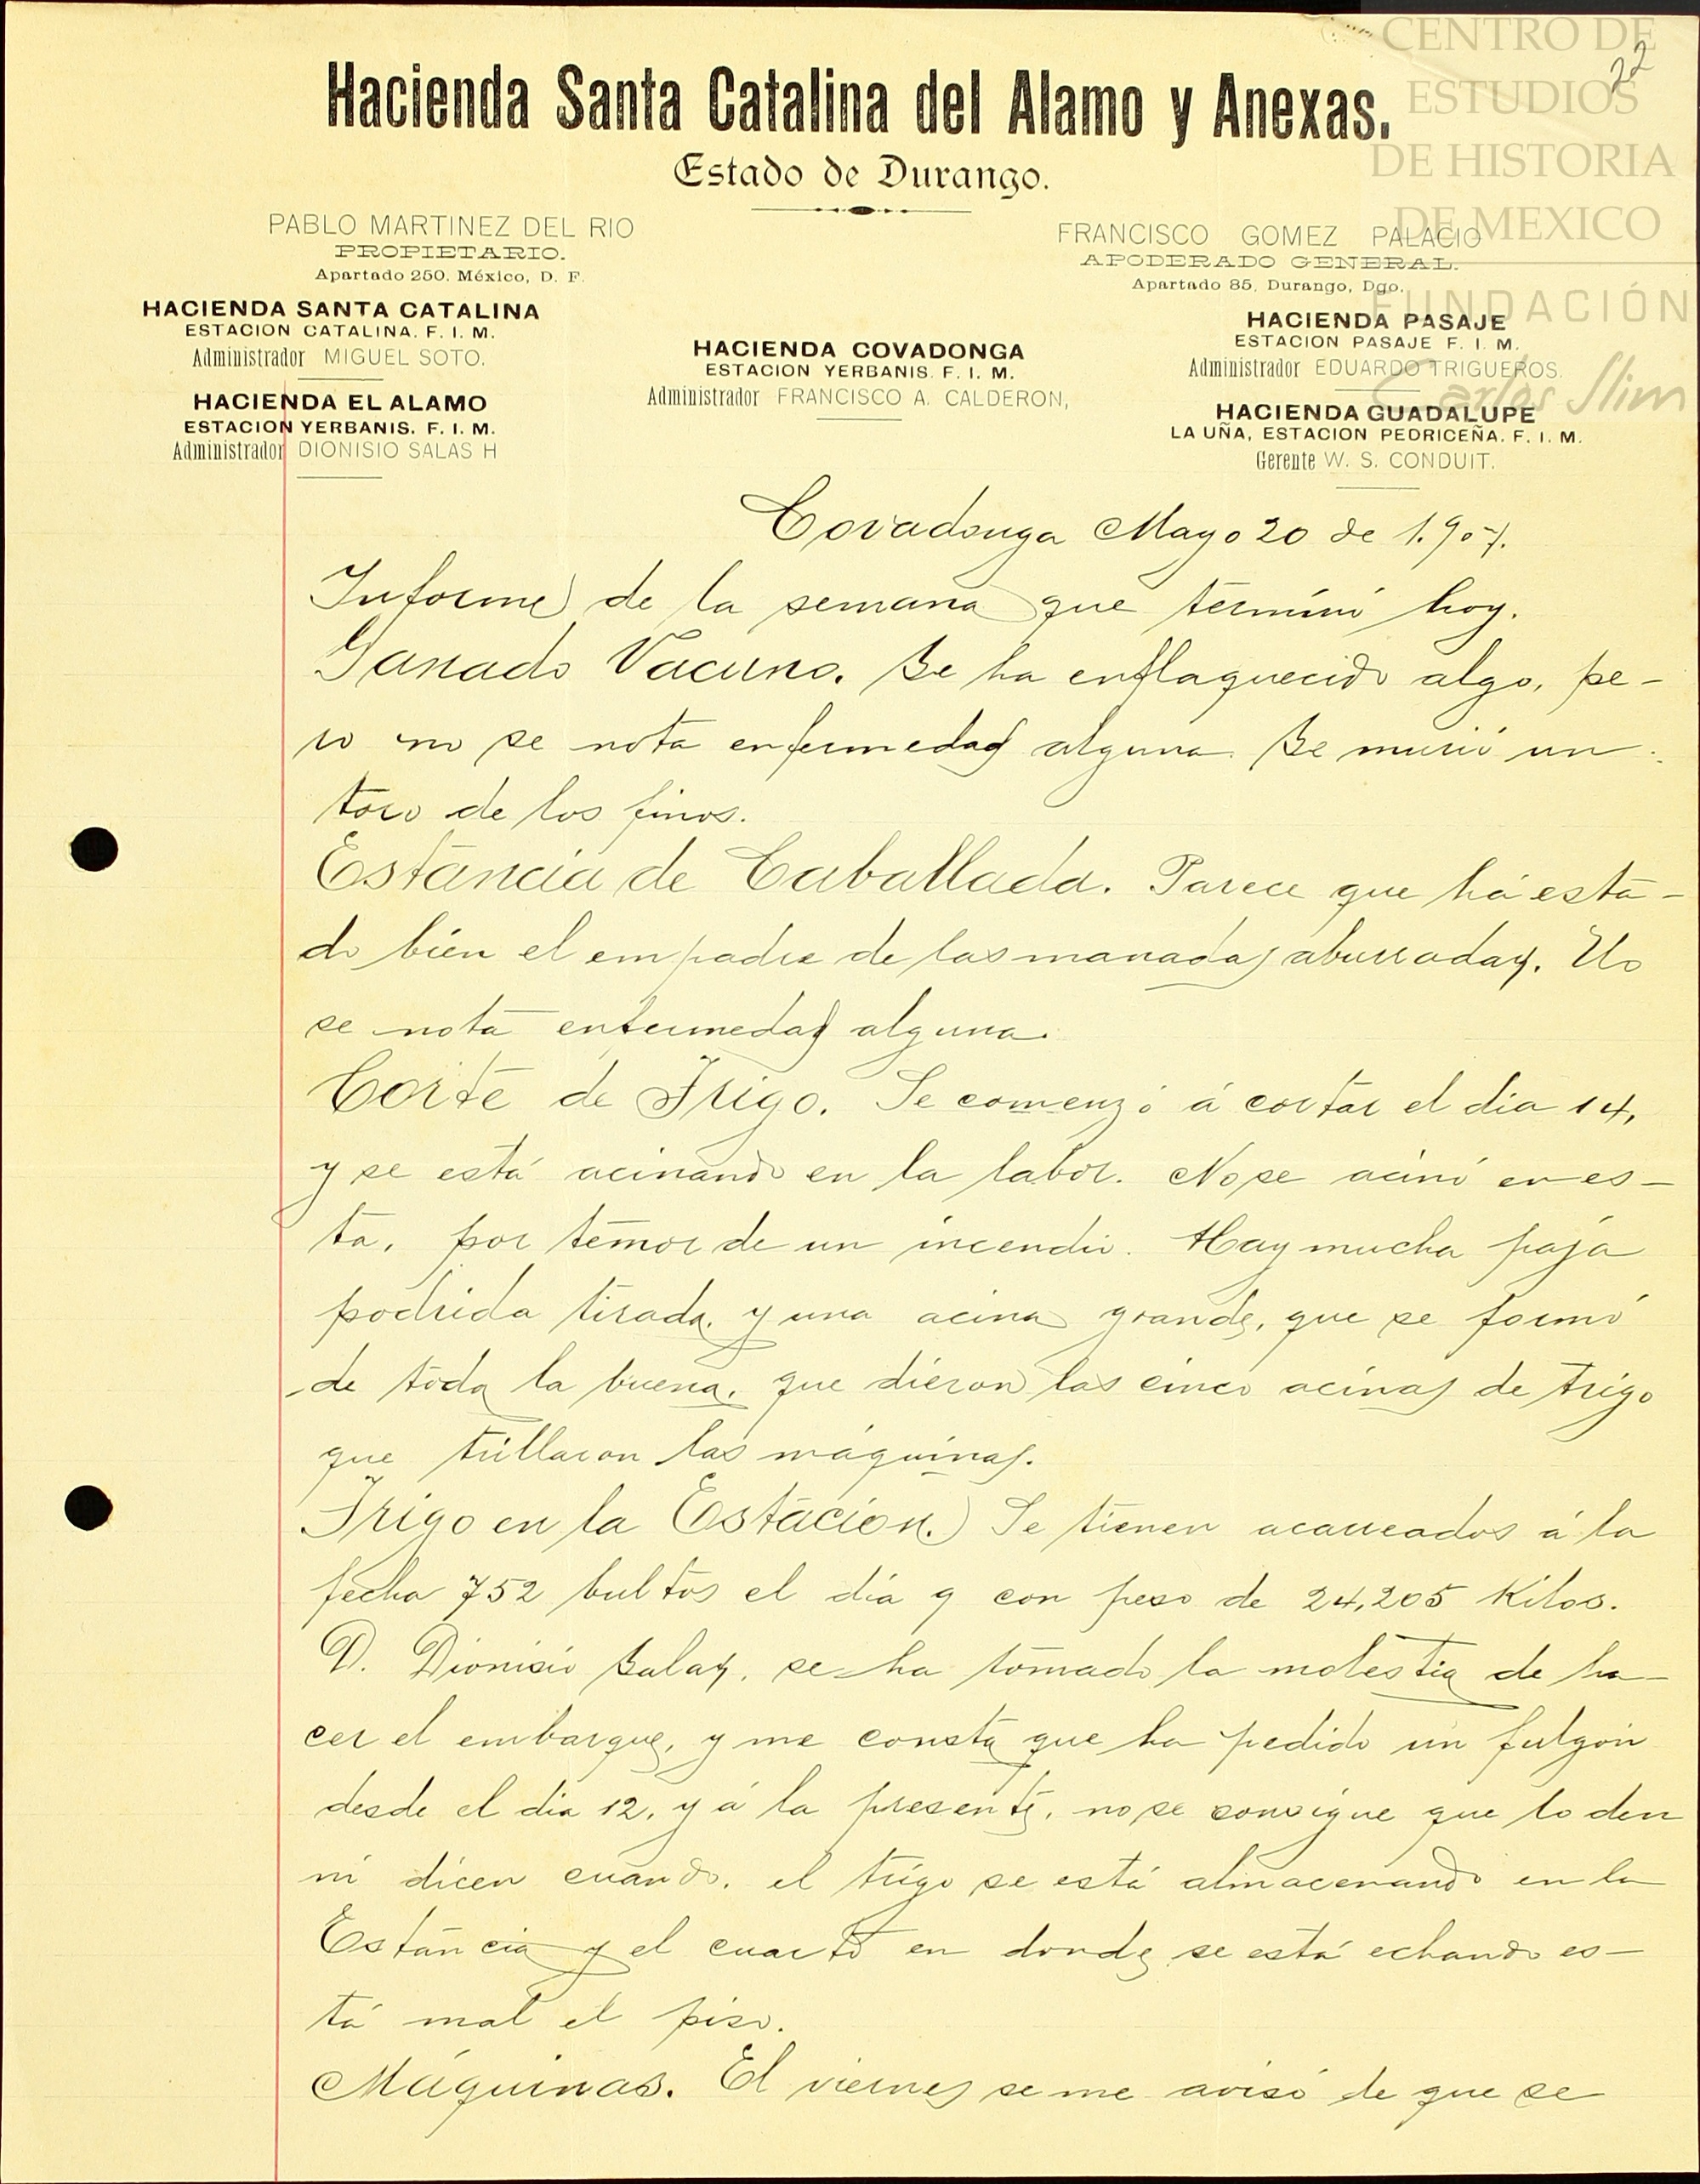 CENTRO DE
ESTUDIOS
DE HISTORIA
DE MEXICO
FUNDACIÓN
Carlos Slim
22
Hacienda Santa Catalina del Alamo y Anexas.
Estado de Durango.
PABLO MARTINEZ DEL RIO
PROPIETARIO.
Apartado 250. México, D. F.
FRANCISCO GOMEZ PALACIO
APODERADO GENERAL.
Apartado 85, Durango, Dgo.
HACIENDA SANTA CATALINA
ESTACION CATALINA. F. I. M.
Administrador MIGUEL SOTO.
HACIENDA EL ALAMO
ESTACION YERBANIS. F. I. M.
Administrador DIONISIO SALAS H
HACIENDA COVADONGA
ESTACION YERBANIS. F. I. M.
Administrador FRANCISCO A. CALDERON,
HACIENDA PASAJE
ESTACION PASAJE F. I. M.
Administrador EDUARDO TRIGUEROS.
HACIENDA GUADALUPE
LA UÑA, ESTACION PEDRICEÑA. F. I. M.
Gerente W. S. CONDUIT.
Covadonga Mayo 20 de 1.907.
Informe de la semana que terminó hoy.
Ganado Vacuno. Se ha enflaquecido algo, pe-
ro no se nota enfermedad alguna. Se murió un
toro de los finos.
Estancia de Caballada. Parece que há esta-
do bién el empadre de las manadas aburradas. No
se nota enfermedad alguna.
Corte de Trigo. Se comenzó á cortar el dia 14,
y se está acinando en la labor. No se acinó en es-
ta, por temor de un incendio. Hay mucha paja
podrida tirada, y una acina grande, que se formó
de toda la buena, que dieron las cinco acinas de trigo
que trillaron las máquinas.
Trigo en la Estación. Se tienen acarreados á la
fecha 752 bultos el día 9 con peso de 24,205 Kilos.
D. Dionisio Salas, se ha tomado la molestia de ha-
cer el embarque, y me consta que ha pedido un fulgón
desde el dia 12, y á la presente, no se consigue que lo den
ni dicen cuando, el trigo se está almacenando en la
Estancia y el cuarto en donde se está echando es-
tá mal el piso.
Máquinas. El viernes se me avisó de que se